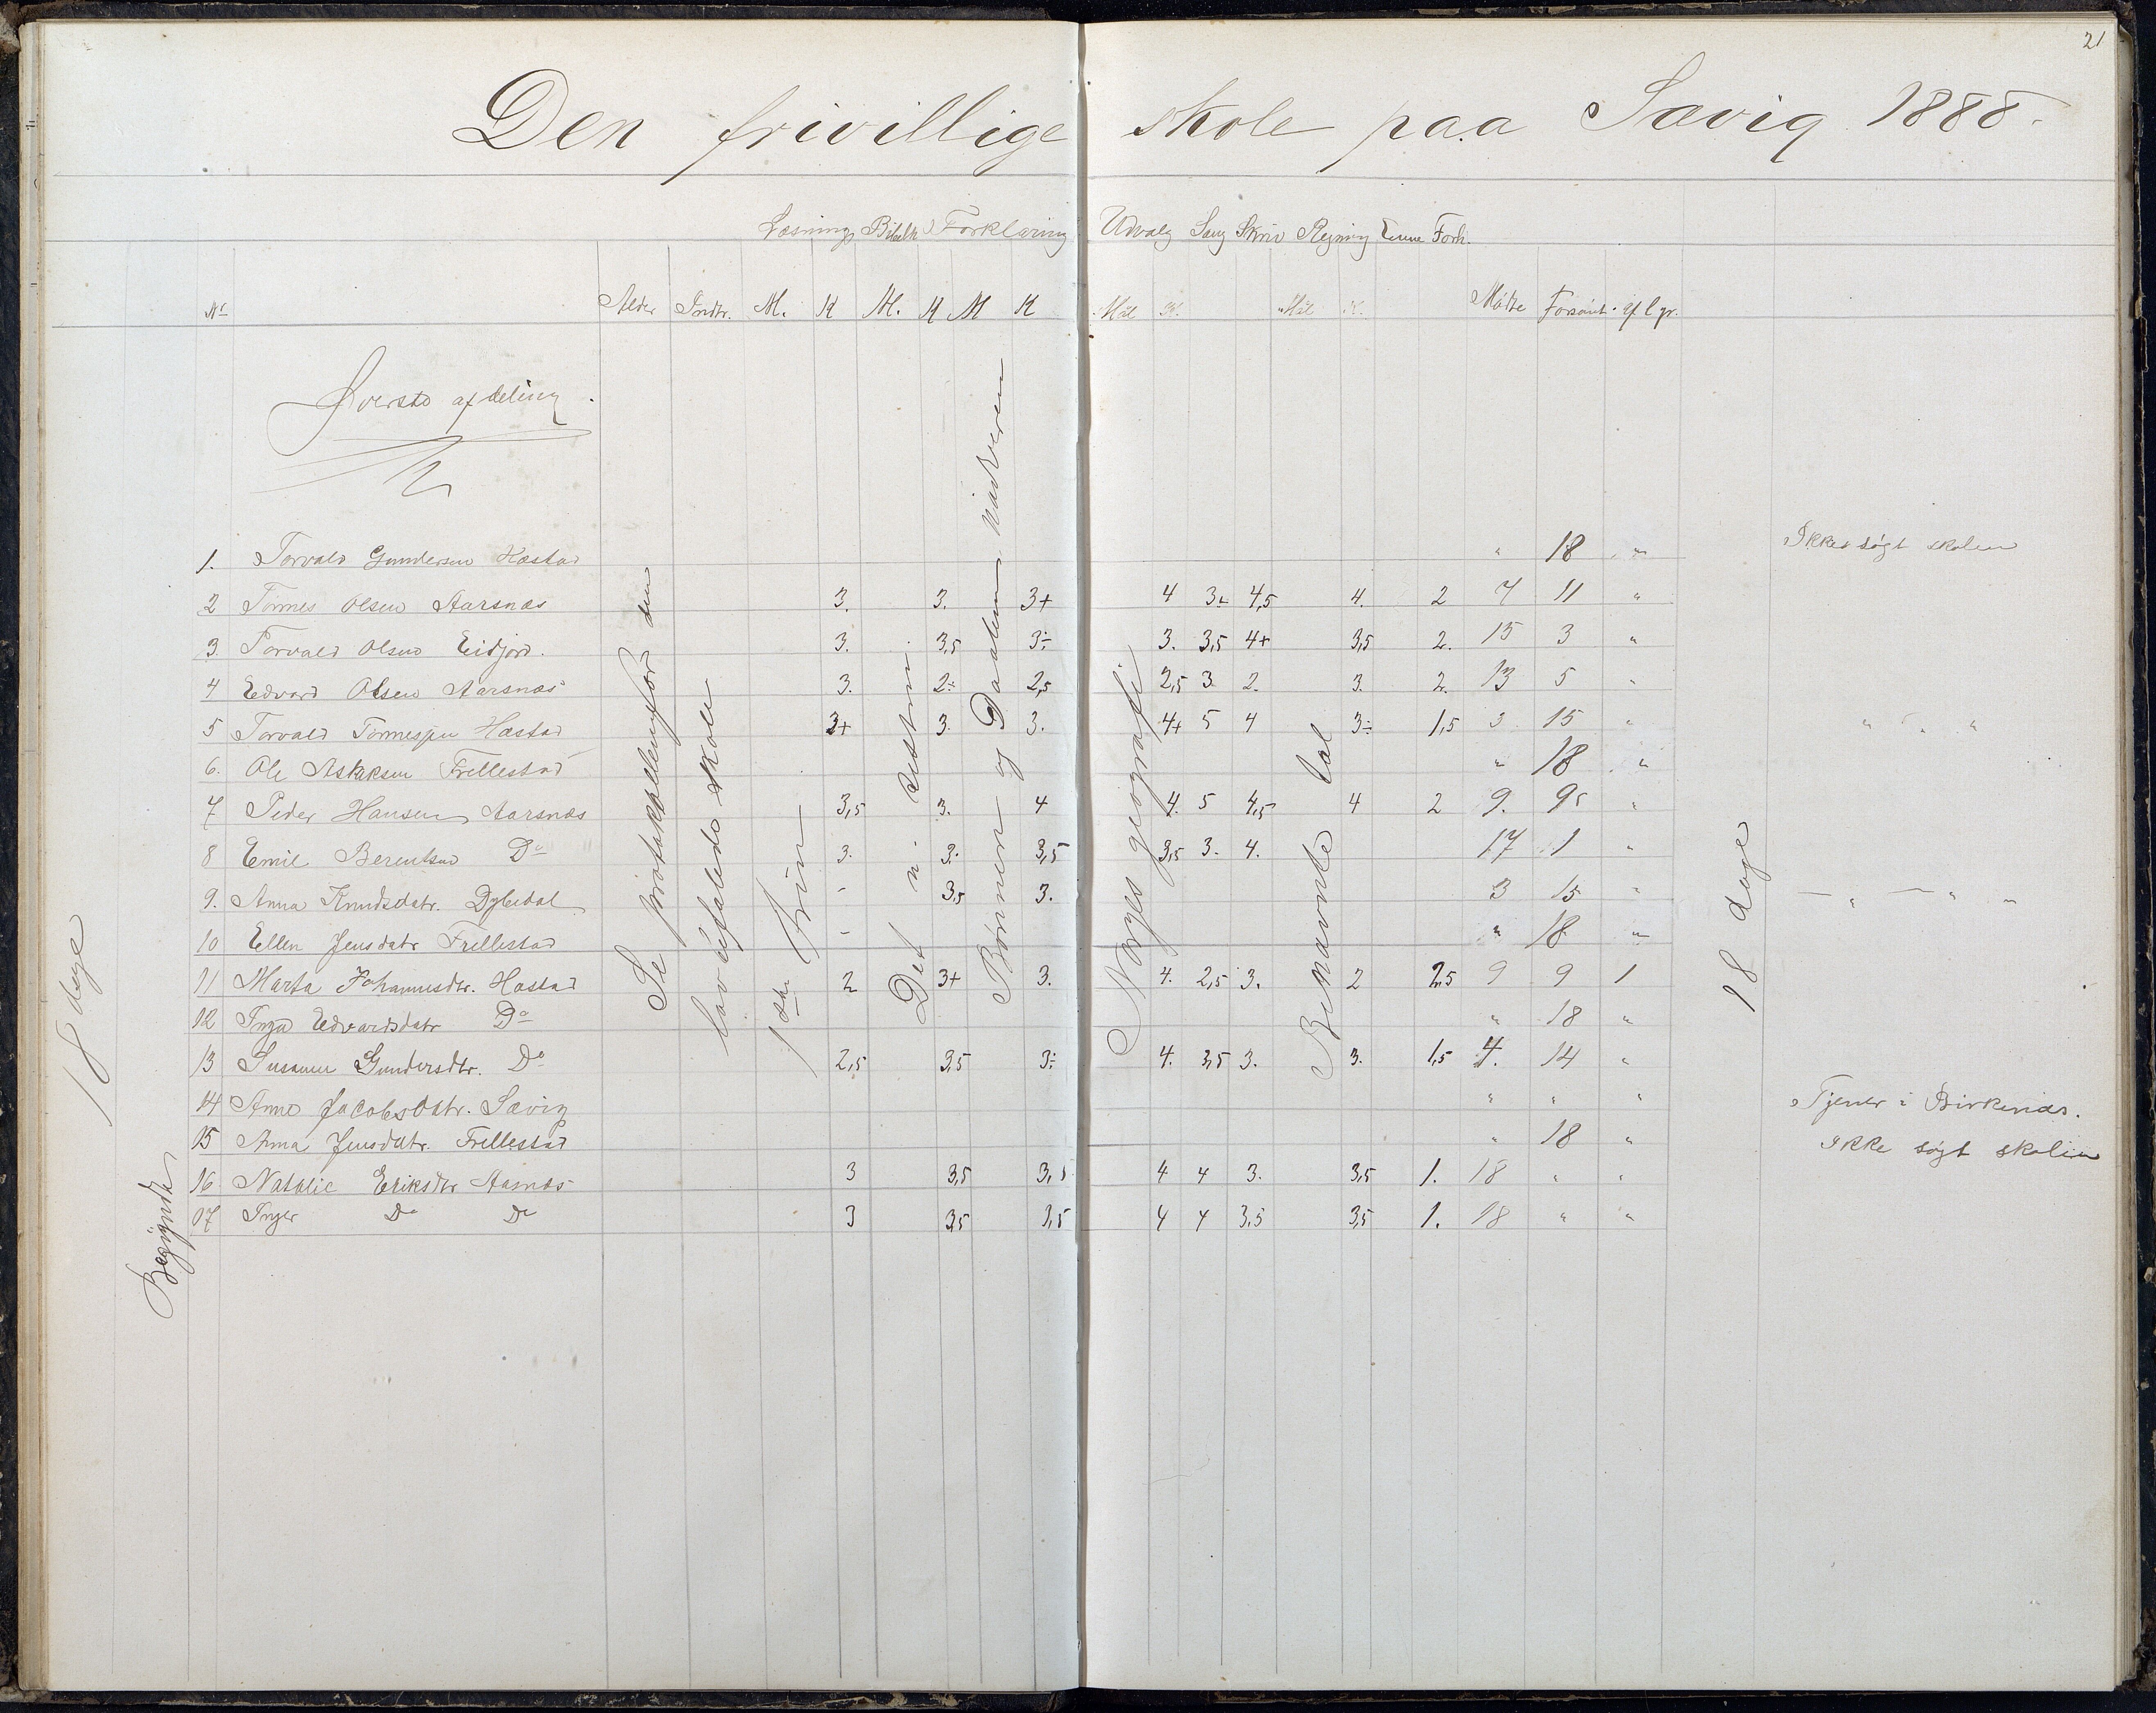 21
Den frivillige skole paa Sævig 1888.
Læsning Bibelh Forklaring Udvalg Sang Skriv Regning Evne Forh.
No Alder Indtr. M. K M. K M K Mål K. Mål K. Mødte Forsømt af l gr.
Øverste afdeling.
1. Torvald Gundersen Hæstad " 18 " Ikke søgt skolen
2 Tønnes Olsen Aarsnæs 3. 3. 3+ 4 3÷ 4,5 4. 2 7 11 "
3. Torvald Olsen Eidjord. 3. 3,5 3÷ 3. 3,5 4+ 3,5 2. 15 3 "
4 Edvard Olsen Aarsnæs 3. 2÷ 2,5 2,5 3. 2. 3. 2. 13 5 "
5 Torvald Tønnesen Hæstad 3+ 3. 3. 4+ 5 4 3÷ 1,5 3 15 " " " "
6. Ole Aslaksen Frellestad " 18 "
7 Peder Hansen Aarsnæs 3,5 3. 4 4. 5 4,5 4 2 9. 9 "
8 Emil Berentsen Do 3. 3. 3,5 3,5 3. 4. 17 1 "
9. Anna Knudsdatr. Dybedal - 3,5 3. 3 15 " — " — " "
10 Ellen Jensdatr Frellestad - " 18 "
11 Marta Johannesdtr. Hæstad 2 3+ 3. 4. 2,5 3. 2 2,5 9 9 1
12 Inga Edvardsdatr Do " 18 "
13 Susanne Gundersdtr. Do 2,5 3,5 3÷ 4. 3,5 3. 3. 1,5 4. 14 "
14 Anne Jacobsdtr. Sævig " " " Tjener i Birkenæs.
15 Anna Jensdatr. Frellestad " 18 " Ikke søgt skolen
16 Natalie Eriksdtr Aarnæs 3 3,5 3,5 4 4 3. 3,5 1. 18 " "
17 Inger Do Do 3 3,5 3,5 4 4 3,5 3,5 1. 18 " "
18 dage
Begyndte
Se protokollen for den
lovbefalede skole
1ste Trin
Det n. testam.
Børnene og Daaben nadveren
Norges geografi
Benævnte tal
18 dage